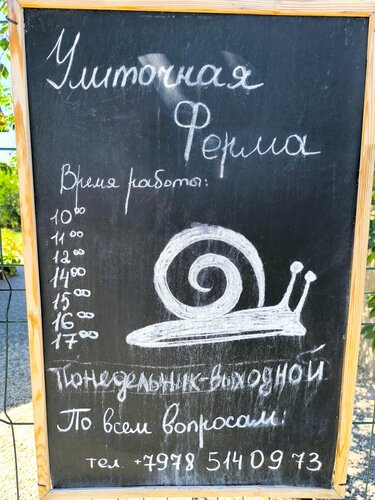 Улиточная
Ферма
Время работы:
10⁰⁰
11⁰⁰
12⁰⁰
14⁰⁰
15⁰⁰
16⁰⁰
17⁰⁰
Понедельник-выходной
По всем вопросам:
тел. +7978 514 09 73